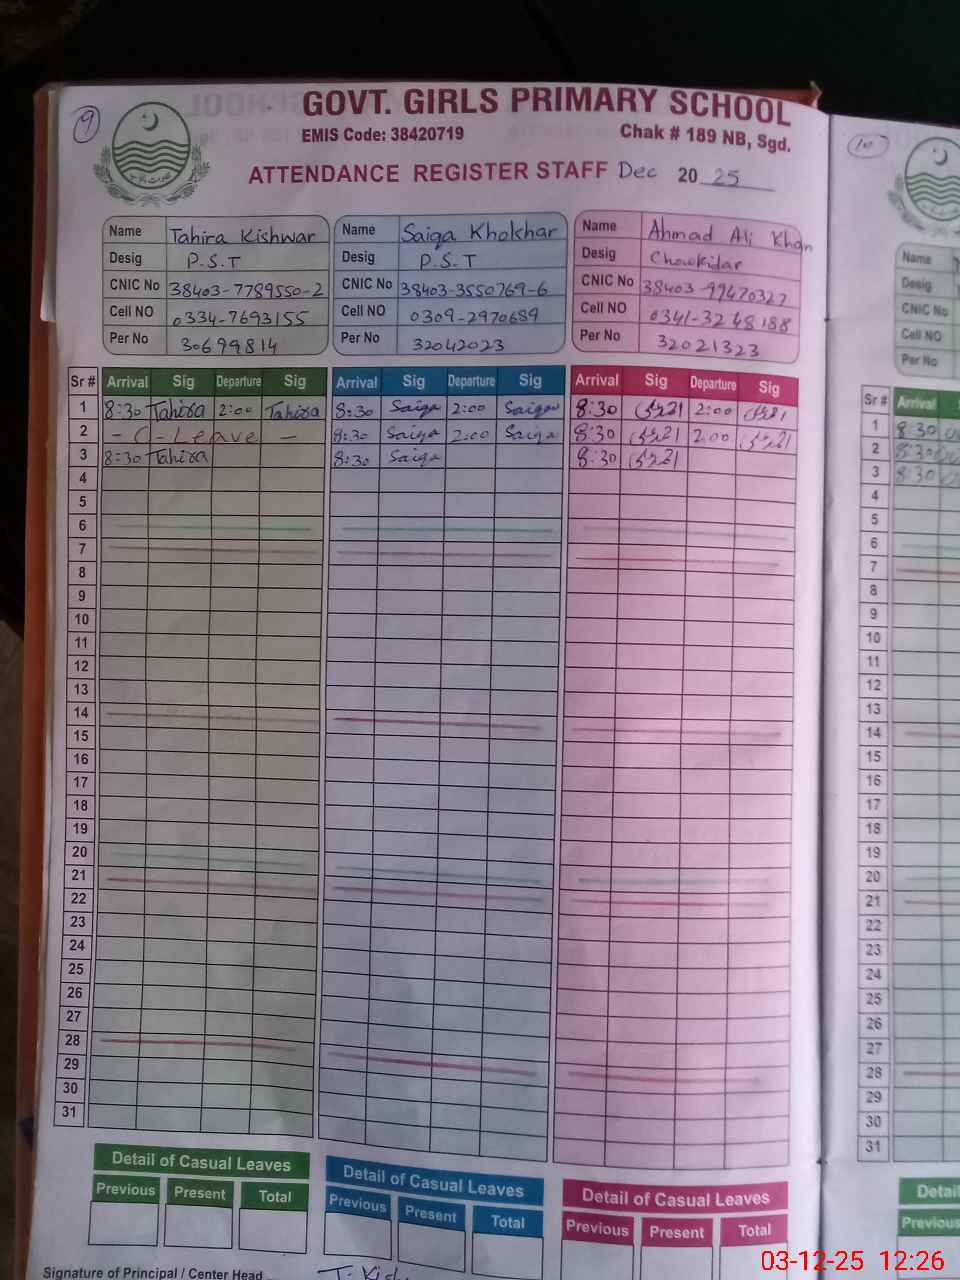 9
GOVT. GIRLS PRIMARY SCHOOL
EMIS Code: 38420719 Chak # 189 NB, Sgd.
ATTENDANCE REGISTER STAFF Dec 20 25
Name Tahira Kishwar
Desig P.S.T
CNIC No 38403-7789550-2
Cell NO 0334-7693155
Per No 30699814
Name Saiqa Khokhar
Desig P.S.T
CNIC No 38403-3550769-6
Cell NO 0309-2970689
Per No 32042023
Name Ahmad Ali Khan
Desig Chowkidar
CNIC No 38403-99470327
Cell NO 0341-3248188
Per No 32021323
Sr # Arrival Sig Departure Sig Arrival Sig Departure Sig Arrival Sig Departure Sig
1 8:30 Tahira 2:00 Tahira 8:30 Saiqa 2:00 Saiqa 8:30 2:00
2 - C - Leave - 8:30 Saiqa 2:00 Saiqa 8:30 2:00
3 8:30 Tahira 8:30 Saiqa 8:30
4
5
6
7
8
9
10
11
12
13
14
15
16
17
18
19
20
21
22
23
24
25
26
27
28
29
30
31
Detail of Casual Leaves
Previous Present Total
Detail of Casual Leaves
Previous Present Total
Detail of Casual Leaves
Previous Present Total
Signature of Principal / Center Head
10
Name
Desig
CNIC No
Cell NO
Per No
Sr # Arrival
1 8:30
2 8:30
3 8:30
4
5
6
7
8
9
10
11
12
13
14
15
16
17
18
19
20
21
22
23
24
25
26
27
28
29
30
31
Detail
Previous
03-12-25 12:26